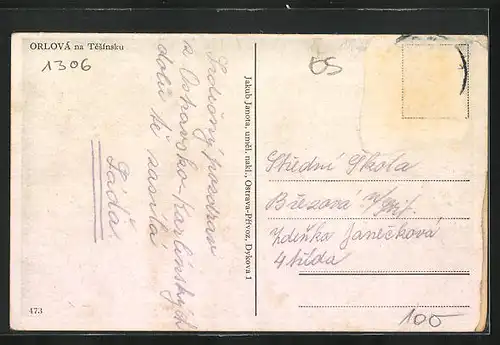 ORLOVÁ na Těšínsku
1306
Srdečný pozdrav
z Ostravsko-Karvinských
dolů tě zasílá
Láďa
Jakub Janota, uměl. nakl., Ostrava-Přívoz, Dykova 1
ČS
Střední Škola
Březová
Zdeňka Janečková
4 třída
473
100